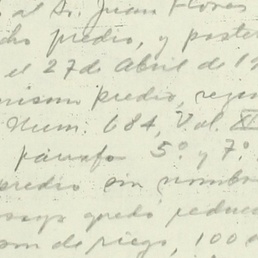 al Sr. Juan Flores
predio, y poster
el 27 de Abril de 19
mismo predio, regis
Num. 684, Vol. XI
párrafo 5º y 7º.
predio sin nombre
quedó reduci
son de riego, 100 d